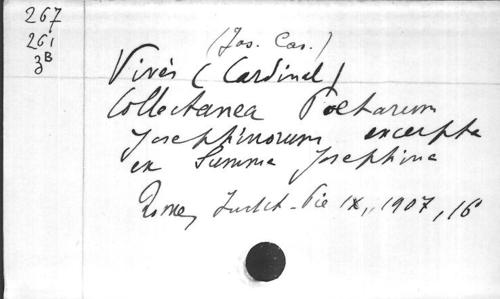 267
261
3B
(Jos. Cas.)
Vivès (Cardinal)
Collectanea Poetarum
Josephinorum excerpta
ex Summa Josephina
Rome, Instit. Pie IX, 1907, 16°